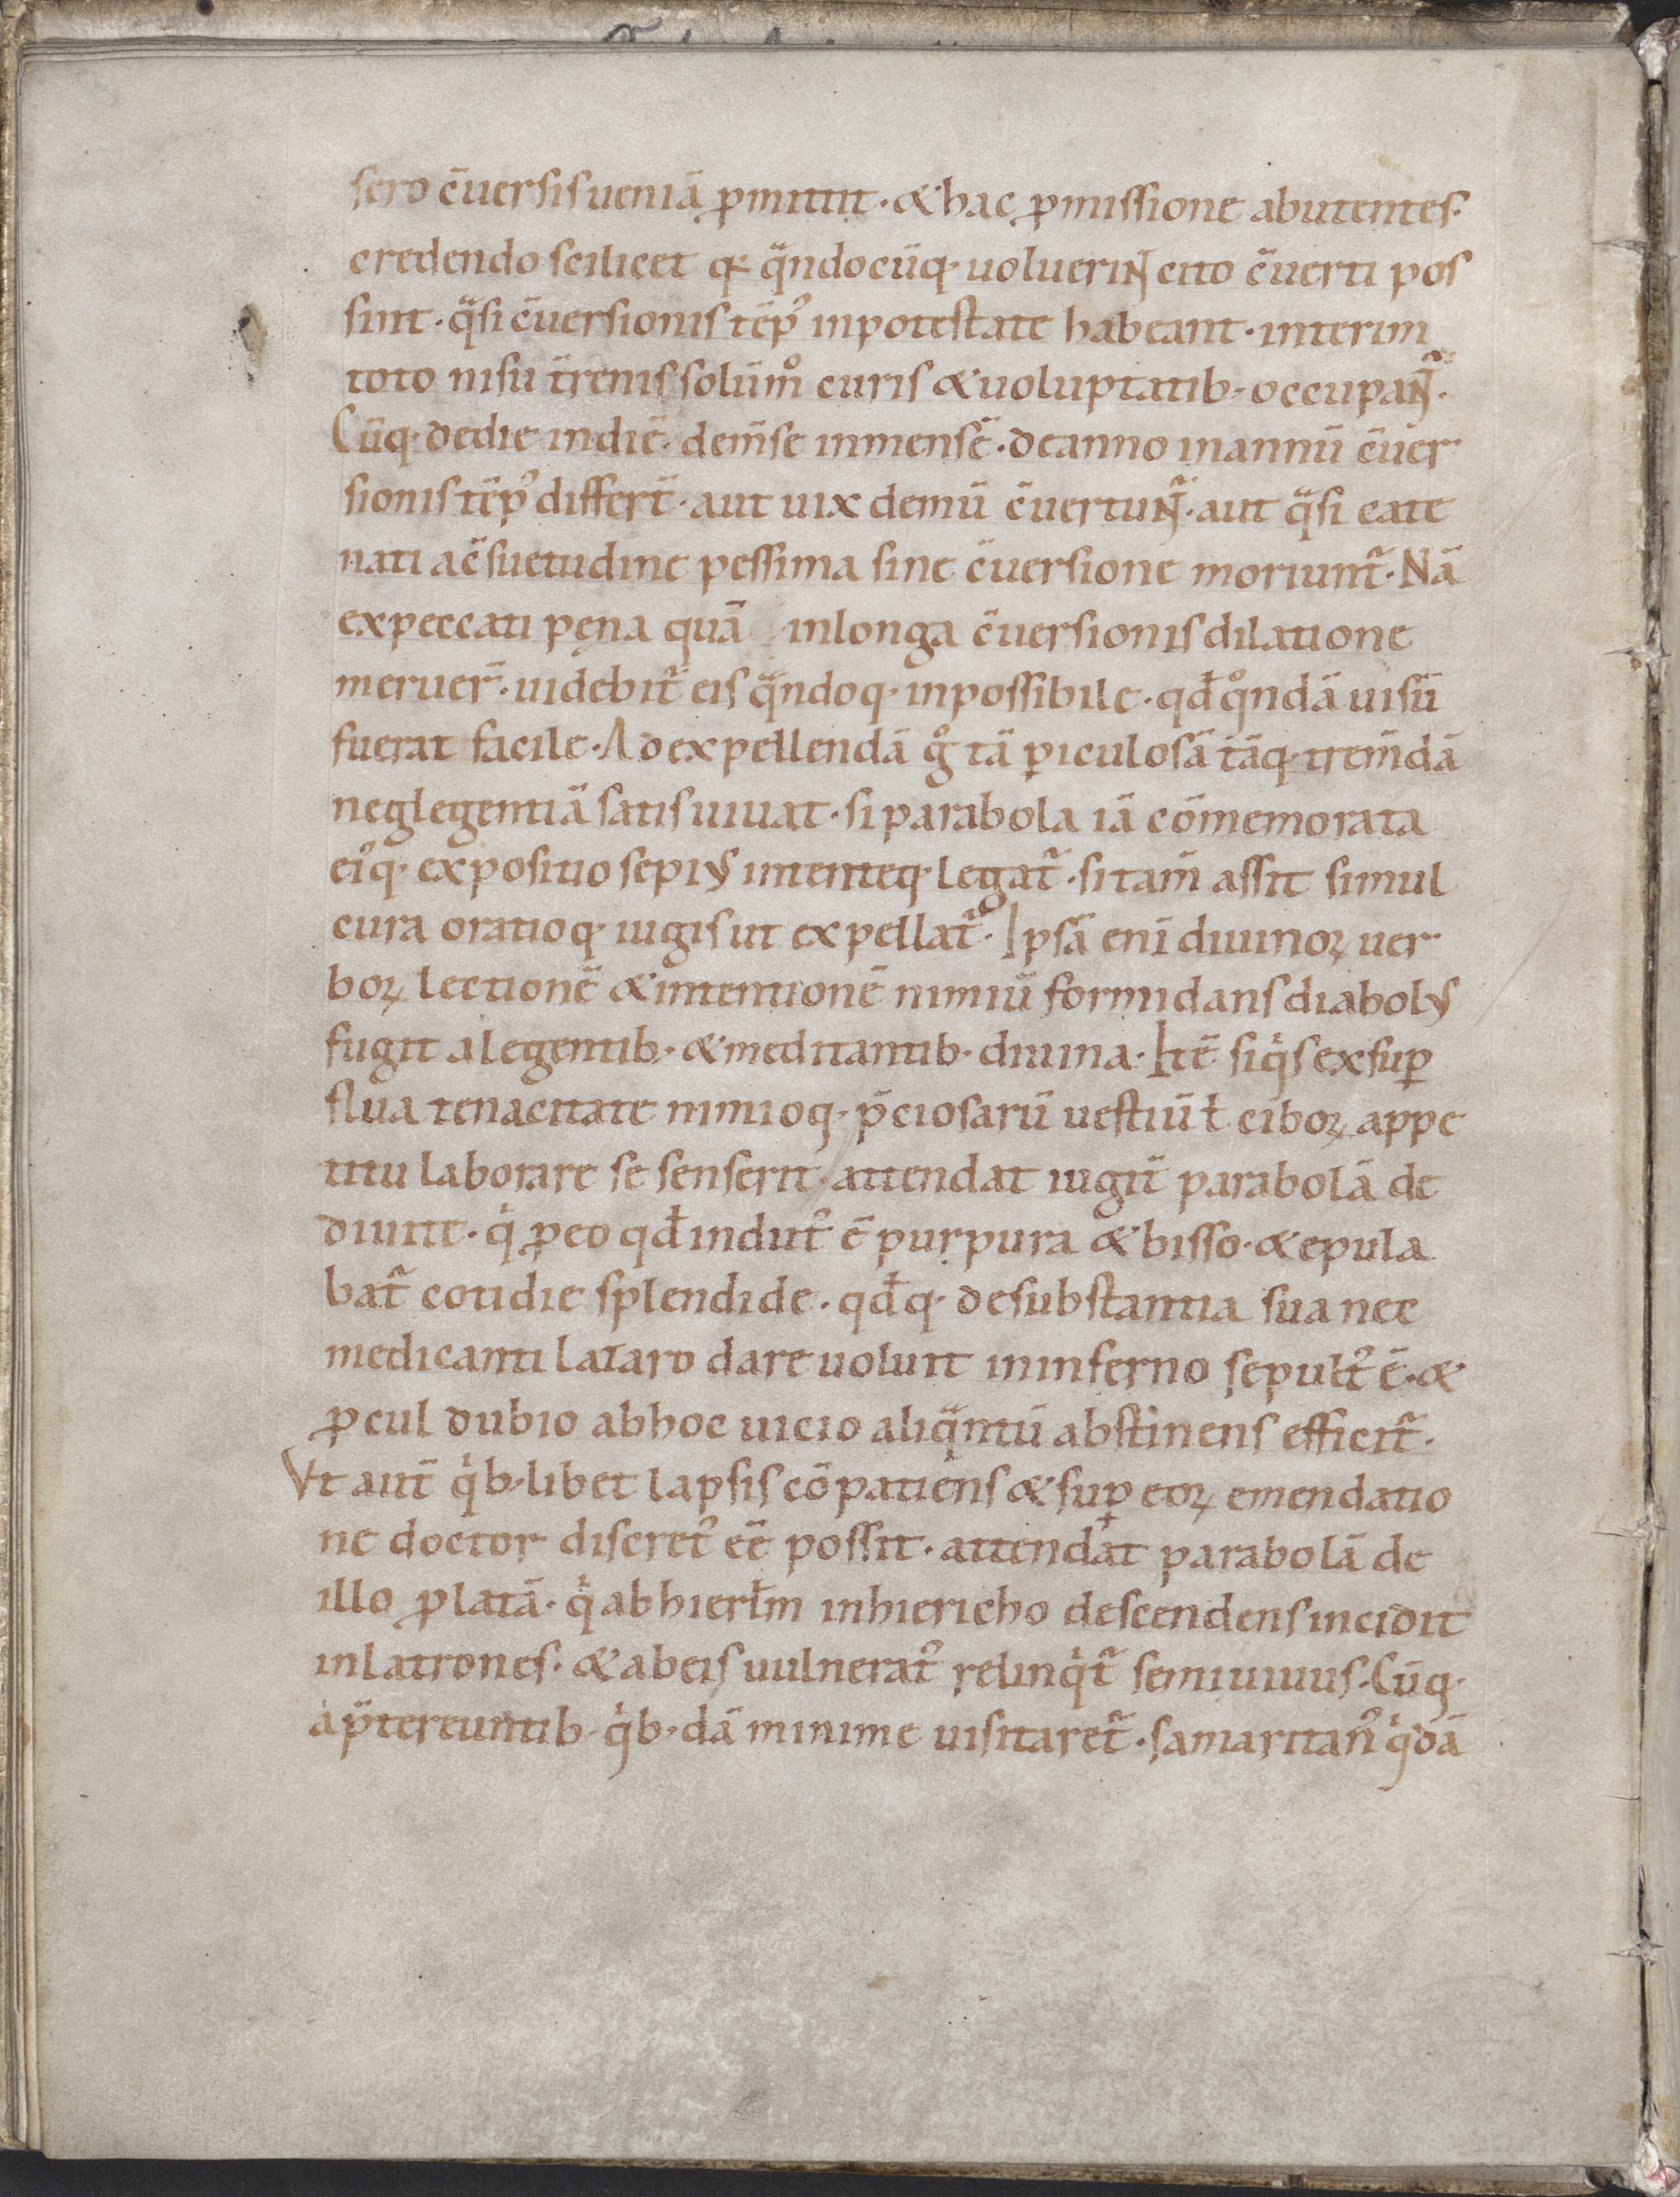 sero c̄uersis ueniā ꝓmittit · & hac ꝓmissione abutentes ·
credendo scilicet qꝛ qͣndocūq· uoluerint cito c̄uerti pos
sint · qͣsi c̄uersionis tēp᾽ in potestate habeant · interim
toto nisu t̄renis solūmͦ curis & uoluptatib· occupant᷑ ·
Cūq· de die in diē · de m̄se in mensē · de anno in annū c̄uer
sionis tēp᾽ differt̄ · aut uix demū c̄uertunt᷑ · aut qͣsi cate
nati a c̄suetudine pessima sine c̄uersione moriunt᷑ · Nā
ex peccati pęna quā in longa c̄uersionis dilatione
meruer̄ · uidebit᷑ eis qͣndoq· inpossibile · qđ qͦndā uisū
fuerat facile · Ad expellendā gͦ tā ꝑiculosā tāq· trem̄dā
neglegentiā satis iuuat · si parabola iā cōmemorata
ei᾽q· expositio sepiꝰ intenteq· legat᷑ · si tam̄ assit simul
cura oratioq· iugis ut expellat᷑ · Ipsā enī diuinoꝝ uer
boꝝ lectionē & intentionē nimiū formidans diabolꝰ
fugit a legentib· & meditantib· diuina · Itē siqͥs ex suꝑ
flua tenacitate nimioq· p̄ciosarū uestiū ł ciboꝝ appe
titu laborare se senserit · attendat iugit̄ parabolā de
diuite · qͥ ꝓ eo qđ indut᾽ ē purpura & bisso · & epula
bat᷑ cotidie splendide · qđq· de substantia sua nec
medicanti lazaro dare uoluit in inferno sepult᾽ ē · &
ꝓcul dubio ab hoc uicio aliqͣntū abstinens efficit᷑ ·
Vt aut̄ qͥb·libet lapsis cōpatiens & suꝑ eoꝝ emendatio
ne doctor discret᾽ eē possit · attendat parabolā de
illo ꝓlatā · qͥ ab hierłm in hiericho descendens incidit
in latrones · & ab eis uulnerat᾽ relinqͥt᷑ semiuiuus · Cūq·
a p̄tereuntib· qͥb·dā minime uisitaret᷑ · samaritan᾽ qͥdā